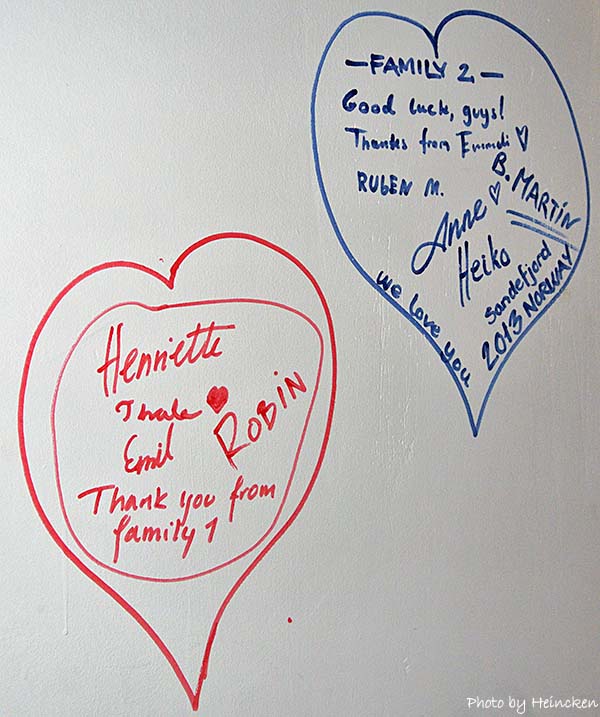 — FAMILY 2 —
Good luck, guys!
Thanks from Emmeli ♡
RUBEN M.
B. MARTIN
Anne ♡
Heiko
Sandefjord
2013 NORWAY
We love you
Henriette
Thale ♥
ROBIN
Emil
Thank you from
family 1
Photo by Heincken